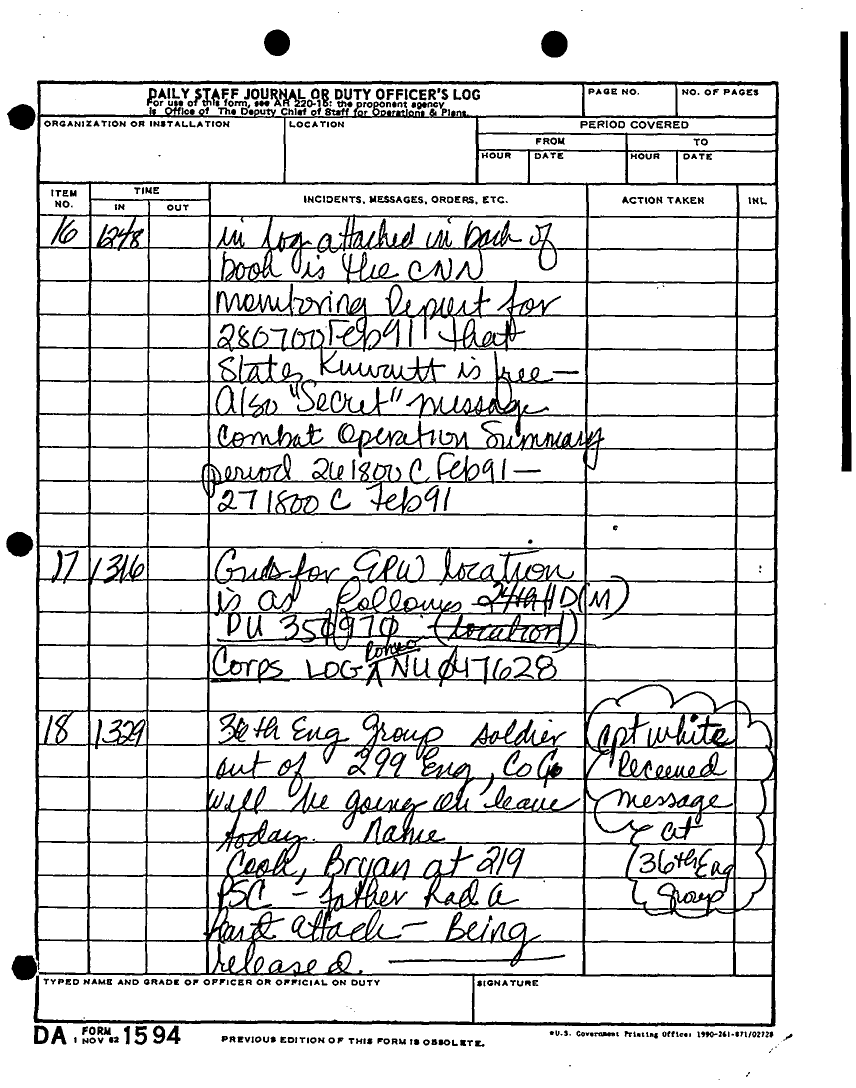 DAILY STAFF JOURNAL OR DUTY OFFICER'S LOG
For use of this form, see AR 220-15: the proponent agency
is Office of The Deputy Chief of Staff for Operations & Plans.
PAGE NO.
NO. OF PAGES
ORGANIZATION OR INSTALLATION
LOCATION
PERIOD COVERED
FROM
TO
HOUR
DATE
HOUR
DATE
ITEM NO.
TIME
IN
OUT
INCIDENTS, MESSAGES, ORDERS, ETC.
ACTION TAKEN
INL
16 1248 in log attached in back of
book is the CNN
monitoring Report for
280700Feb91 that
States Kuwautt is free —
Also "Secret" message
Combat Operation Summary
period 261800 C Feb91 —
271800 C Feb91
17 1316 Grids for EPW location
is as follows 24th ID(M)
DU 350970 (location)
Corps LOG Romeo NU 047628
18 1329 36th Eng Group soldier
out of 299 Eng, Co
will be going on leave
today. Name
Cook, Bryan at 219
PSC - father had a
heart attack - Being
released.
Cpt white
Received
message
at
36th Eng
Group
TYPED NAME AND GRADE OF OFFICER OR OFFICIAL ON DUTY
SIGNATURE
DA FORM 1 NOV 62 1594
PREVIOUS EDITION OF THIS FORM IS OBSOLETE.
*U.S. Government Printing Office: 1990-261-871/02728